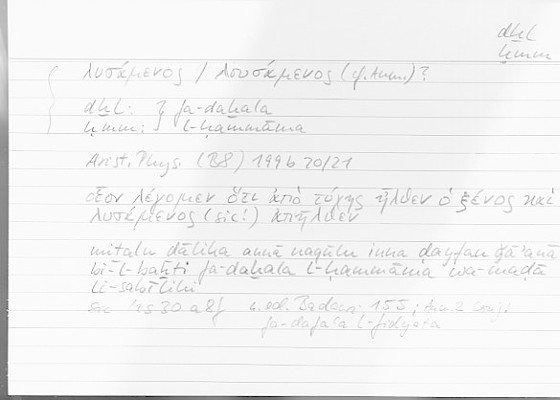 dḫl
ḥmm
λυσάμενος / λουσάμενος (cf. Anm.)?
dḫl: } fa-daḫala
ḥmm: } l-ḥammāma
Arist. Phys. (Β8) 199b 20/21
οἷον λέγομεν ὅτι ἀπὸ τύχης ἦλθεν ὁ ξένος καὶ
λυσάμενος (sic!) ἀπῆλθεν
mitalu dālika annā naqūlu inna dayfan ǧāʾanā
bi-l-baḫti fa-daḫala l-ḥammāma wa-maḍā
li-sabīlihi
ed. Badawi 155; Anm. 2 Conj.
fa-dafaʿa l-fidyata